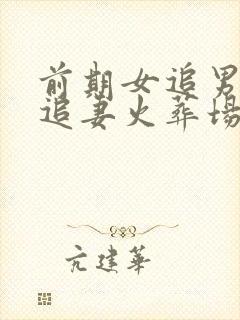 前期女追男
追妻火葬场
亢建华